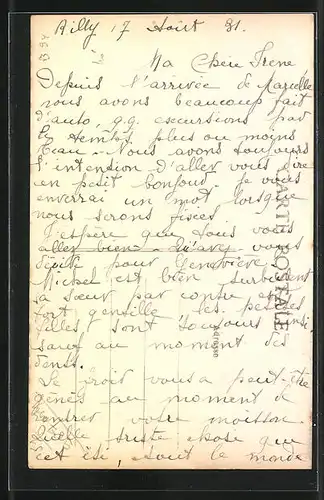 Ailly 17 Août 31.
Ma Chère Irène
Depuis l'arrivée de Marcelle
nous avons beaucoup fait
d'auto, q.q. excursions par
le temps plus ou moins
beau. Nous avons toujours
l'intension d'aller vous dire
un petit bonjour je vous
enverrai un mot lorsque
nous serons fixés
J'espère que tous vous
aller bien. vous
pour Geneviève
Michel est bien turbulent
sa sœur par contre est
fort gentille les petites
filles sont toujours ainsi
sauf au moment des
dents.
Le froid vous a peut-être
gênés au moment de
rentrer votre moisson
Quelle triste chose que
cet été, tout le monde
CARTE POSTALE
Adresse